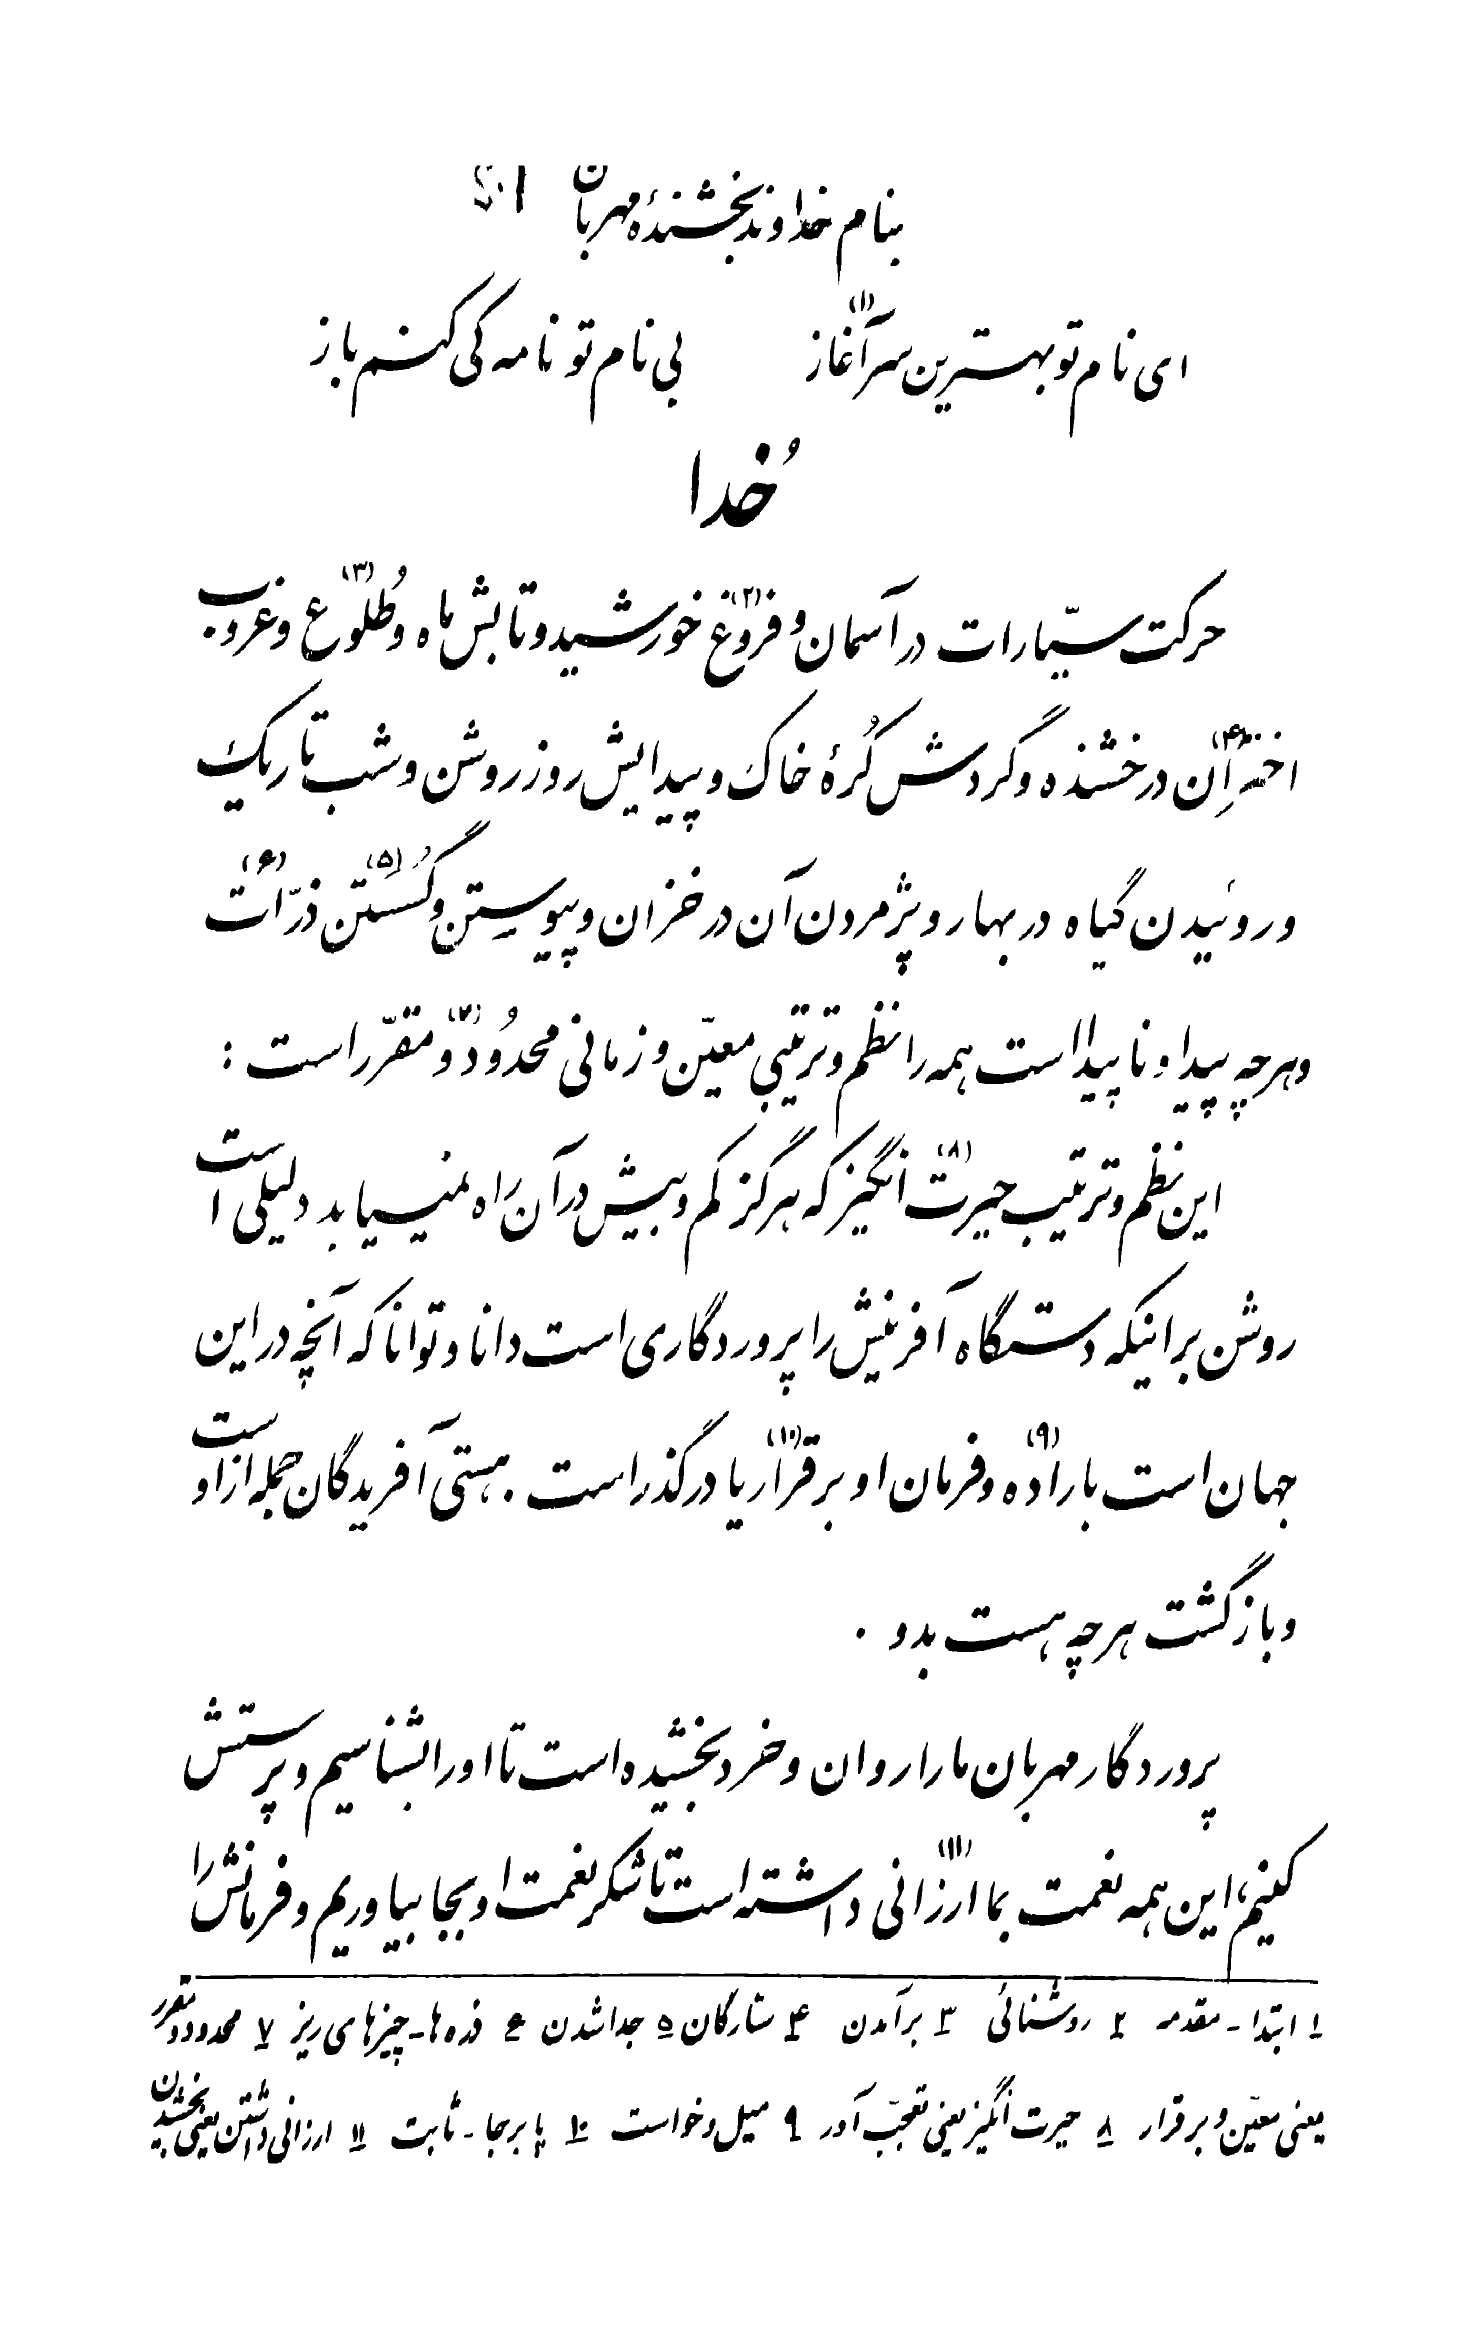 بنام خداوند بخشندهٔ مهربان
ای نام تو بهترین سرآغاز (۱) بی نام تو نامه کی کنم باز
خُدا
حرکت سیّارات در آسمان و فروغ (۲) خورشید و تابش ماه و طُلوع (۳) و غروب
اختران (۴) درخشنده و گردش کُرهٔ خاک و پیدایش روز روشن و شب تاریک
و روئیدن گیاه در بهار و پژمردن آن در خزان و پیوستن و گُسستن (۵) ذرّات (۶)
و هرچه پیدا و ناپیدا است همه را نظم و ترتیبی معیّن و زمانی محدُود (۷) و مقرّر است :
این نظم و ترتیب حیرت (۸) انگیز که هرگز کم و بیش در آن راه نمییابد دلیلی است
روشن بر اینکه دستگاه آفرینش را پروردگاری است دانا و توانا که آنچه در این
جهان است باراده (۹) و فرمان او برقرار (۱۰) یا درگذر است . هستی آفریدگان جمله از اوست
و بازگشت هرچه هست بدو .
پروردگار مهربان ما را روان و خرد بخشیده است تا او را بشناسیم و پرستش
کنیم، این همه نعمت بما ارزانی (۱۱) داشته است تا شکر نعمت او بجا بیاوریم و فرمانش را
۱ ابتدا - مقدمه ۲ روشنائی ۳ برآمدن ۴ ستارگان ۵ جدا شدن ۶ ذره ها - چیزهای ریز ۷ محدود و مقرر
یعنی معیّن و برقرار ۸ حیرت انگیز یعنی تعجّب آور ۹ میل و خواست ۱۰ پابرجا - ثابت ۱۱ ارزانی داشتن یعنی بخشیدن